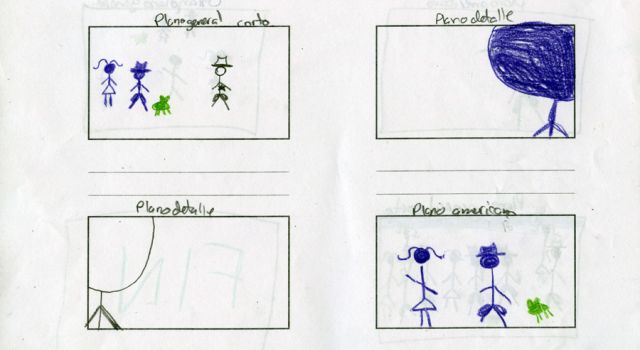 Plano general corto
Plano detalle
Plano detalle
Plano americano
FIN